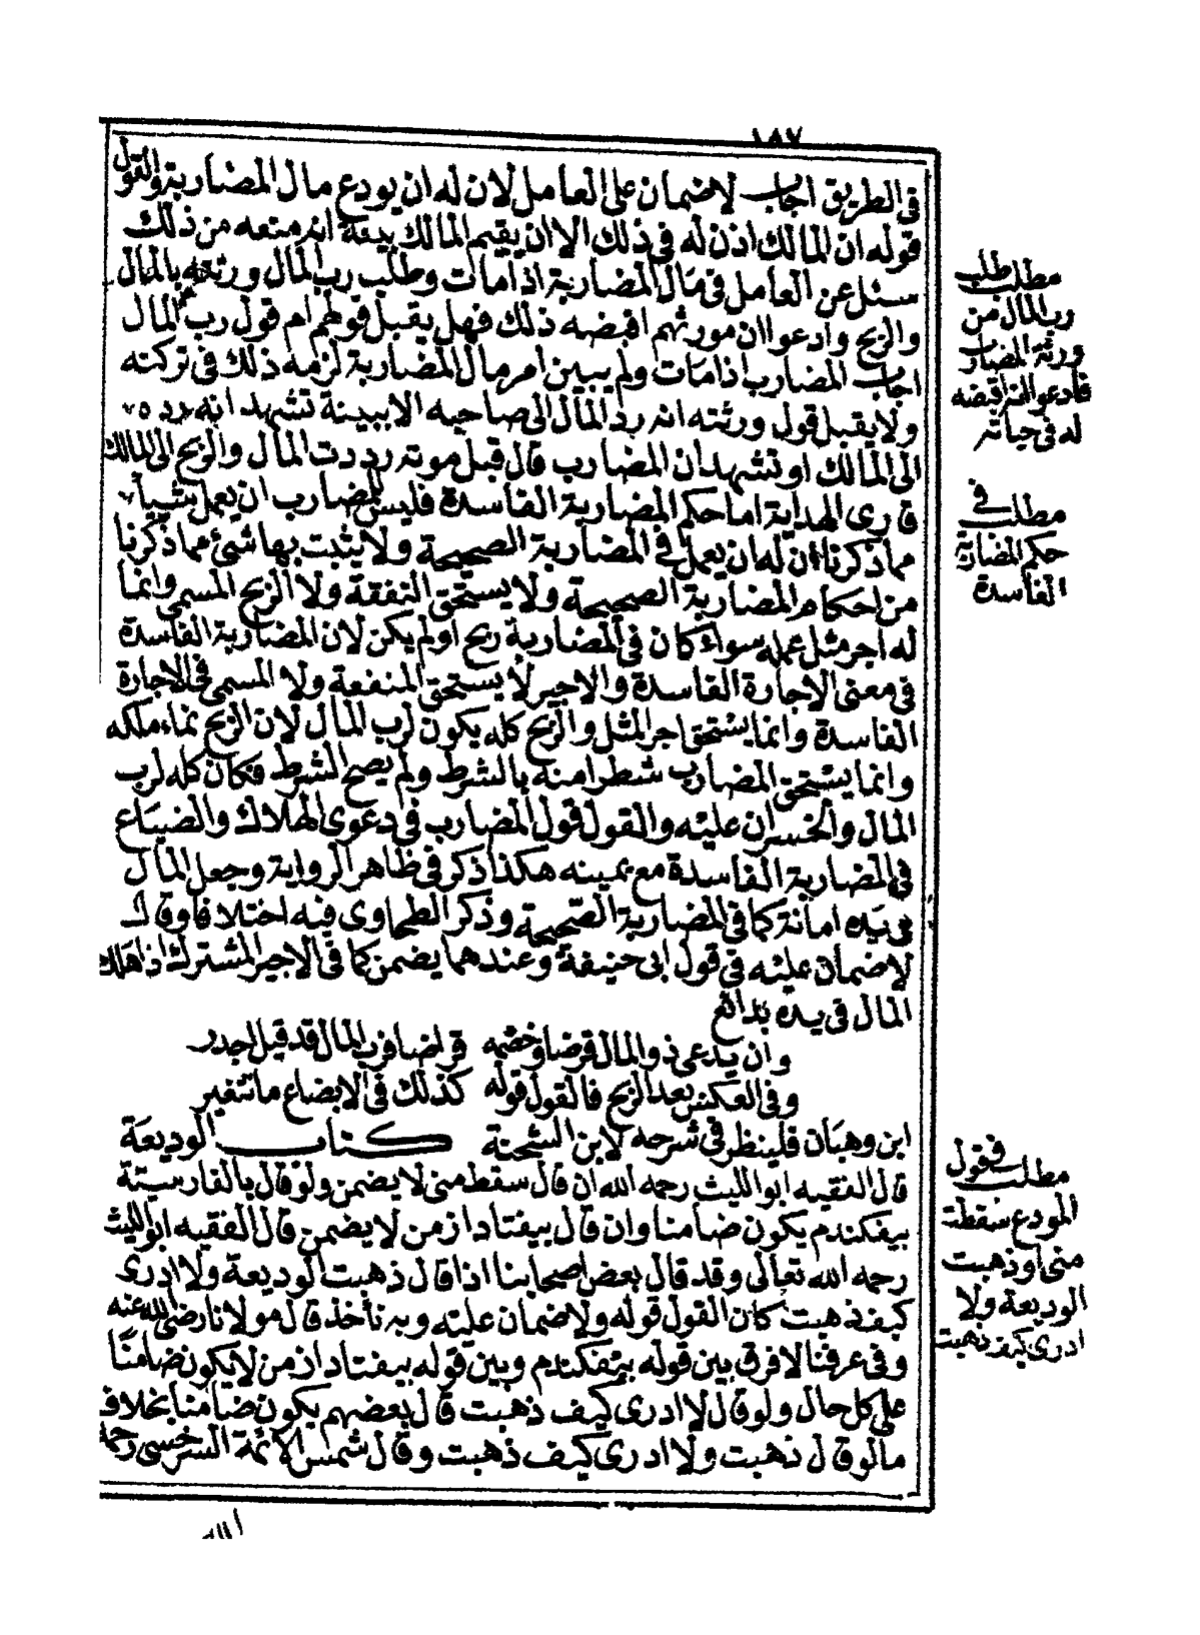 ١٨٧
في الطريق اجاب لاضمان على العامل لان له ان يودع مال المضاربة والقول
قوله ان المالك اذن له في ذلك الا ان يقيم المالك بينة انه منعه من ذلك
سئل عن العامل في مال المضاربة اذا مات وطلب رب المال ورثته بالمال
والربح وادعوا ان مورثهم اقبضه ذلك فهل يقبل قولهم ام قول رب المال
اجاب المضارب اذا مات ولم يبين امر مال المضاربة لزمه ذلك في تركته
ولا يقبل قول ورثته انه رد المال الى صاحبه الا ببينة تشهد انه رده
الى المالك او تشهد ان المضارب قال قبل موته رددت المال والربح الى المالك
قارى الهداية اما حكم المضاربة الفاسدة فليس للمضارب ان يعمل شيأ
مما ذكرنا ان له ان يعمل في المضاربة الصحيحة ولا يثبت بها شئ مما ذكرنا
من احكام المضاربة الصحيحة ولا يستحق النفقة ولا الربح المسمى وانما
له اجر مثل عمله سواء كان في المضاربة ربح او لم يكن لان المضاربة الفاسدة
في معنى الاجارة الفاسدة والاجير لا يستحق المنفعة ولا المسمى في الاجارة
الفاسدة وانما يستحق اجر المثل والربح كله يكون لرب المال لان الربح نماء ملكه
وانما يستحق المضارب شطرا منه بالشرط ولم يصح الشرط فكان كله لرب
المال والخسران عليه والقول قول المضارب في دعوى الهلاك والضياع
في المضاربة الفاسدة مع يمينه هكذا ذكر في ظاهر الرواية وجعل المال
في يده امانة كما في المضاربة الصحيحة وذكر الطحاوى فيه اختلافا وقال
لاضمان عليه في قول ابى حنيفة وعندهما يضمن كما في الاجير المشترك اذا هلك
المال في يده بدائع
وان يدعى ذو المال قرضا وخصمه قراضا فرب المال قد قيل اجدر
وفي العكس بعد الربح فالقول قوله كذلك في الابضاع ما تتغير
ابن وهبان فلينظر في شرحه لابن الشحنة كتاب الوديعة
قال الفقيه ابو الليث رحمه الله ان قال سقط منى لا يضمن ولو قال بالفارسية
بيفكندم يكون ضامنا وان قال بيفتاد از من لا يضمن قال الفقيه ابو الليث
رحمه الله تعالى وقد قال بعض اصحابنا اذا قال ذهبت الوديعة ولا ادرى
كيف ذهبت كان القول قوله ولاضمان عليه وبه نأخذ قال مولانا رضى الله عنه
وفي عرفنا لا فرق بين قوله بيفكندم وبين قوله بيفتاد از من لا يكون ضامنا
على كل حال ولو قال لا ادرى كيف ذهبت قال بعضهم يكون ضامنا بخلاف
ما لو قال ذهبت ولا ادرى كيف ذهبت وقال شمس الائمة السرخسى رحمه
الله
مطلب طلب
رب المال من
ورثة المضارب
فادعوا انه اقبضه
له في حياته
مطلب في
حكم المضاربة
الفاسدة
مطلب في قول
المودع سقطت
منى او ذهبت
الوديعة ولا
ادرى كيف ذهبت